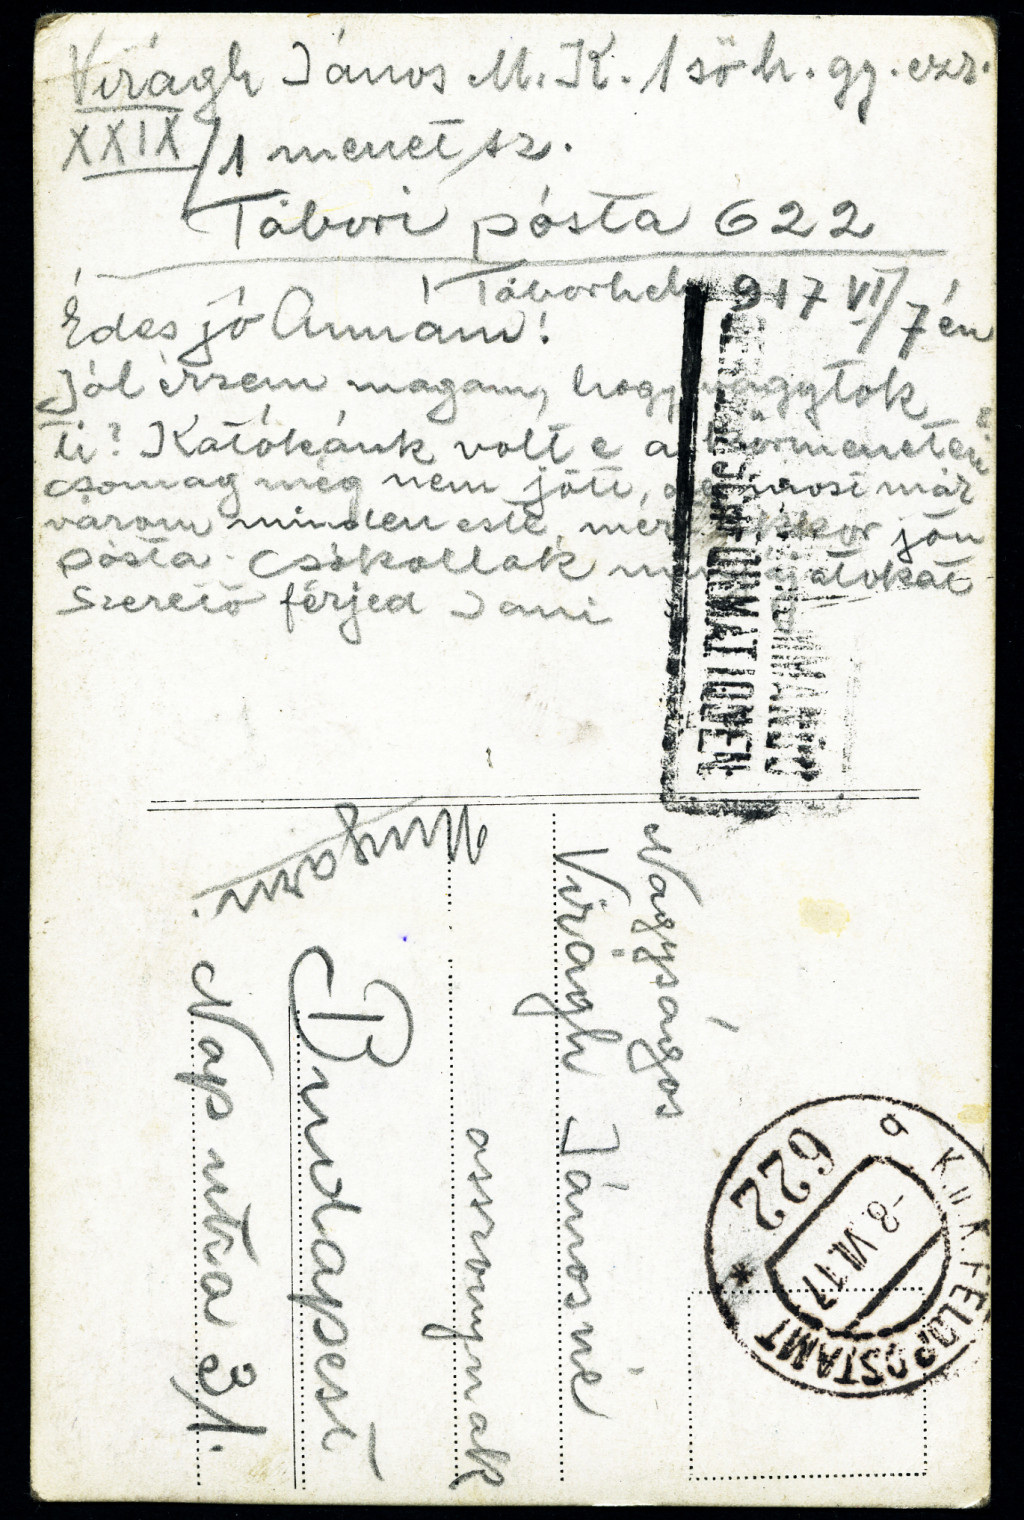 Virágh János M. K. 1 ső h. gy. ezr.
XXIX/1 menet sz.
Tábori pósta 622
Táborhely 917 VI/7 én
Édes jó Annám!
Jól érzem magam, hogy vagytok
ti? Katókánk volt e a körmeneten?
csomag még nem jött, de most már
várom minden este, mert akkor jön
pósta. Csókollak mindnyájatokat
Szerető férjed Jani
FORMATIONEN
KOMMANDO
Nagyságos
Virágh Jánosné
asszonynak
Ungarn.
Budapest
Nap utca 31.
K.u.K. FELDPOSTAMT
a
-8 VI 17
622